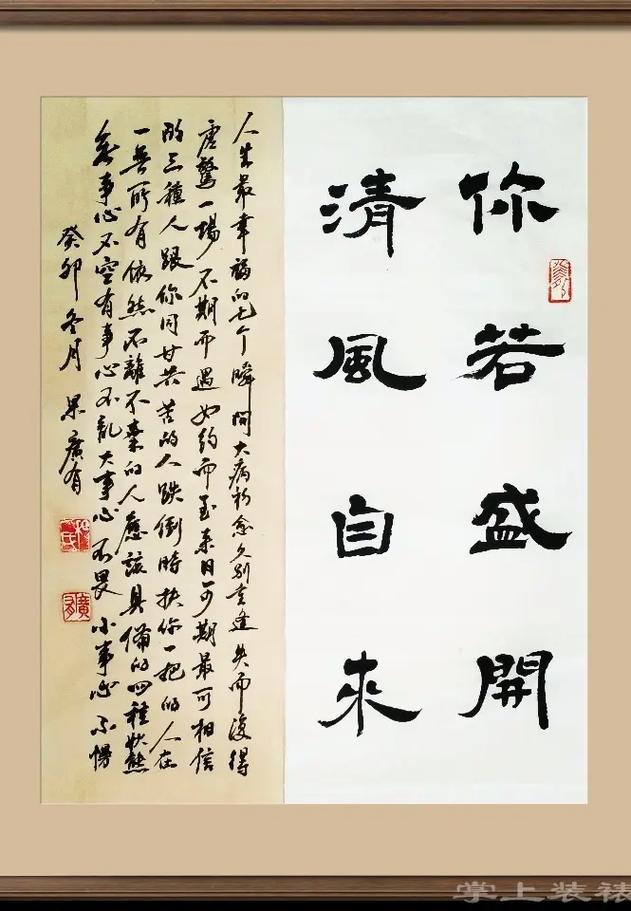 你若盛開
清風自來
人生最幸福的七个瞬間大病初愈久别重逢失而復得
虚驚一場不期而遇如约而至来日可期最可相信
的三種人跟你同甘共苦的人跌倒時扶你一把的人在
一無所有依然不離不棄的人應該具備的四種狀態
無事心不空有事心不乱大事心不畏小事心不慢
癸卯冬月 廣有
掌上装裱